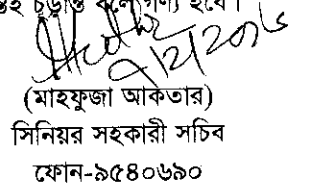 চূড়ান্ত বলে গণ্য হবে।
৭/২/২০১৬
(মাহফুজা আকতার)
সিনিয়র সহকারী সচিব
ফোন-৯৫৪০৬৯০